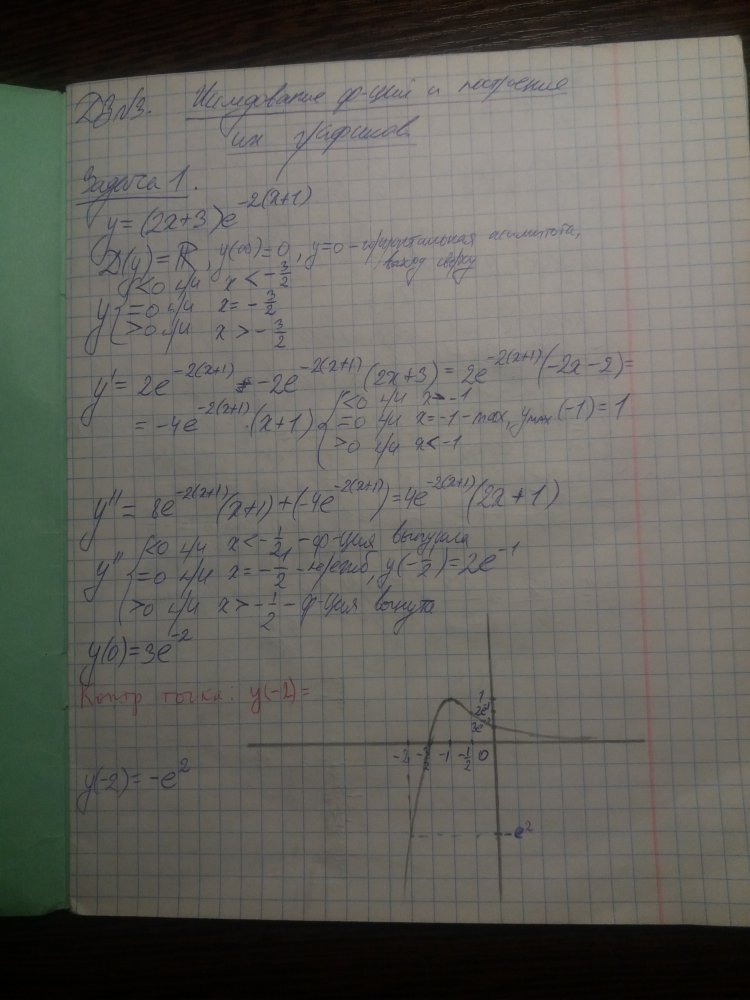 ДЗ №3. Исследование ф-ций и построение
их графиков.
Задача 1.
y=(2x+3)e^{-2(x+1)}
D(y)=ℝ, y(∞)=0, y=0 - горизонтальная асимптота,
выход сверху
y {<0 при x<-3/2
=0 при x=-3/2
>0 при x>-3/2
y'=2e^{-2(x+1)}-2e^{-2(x+1)}(2x+3)=2e^{-2(x+1)}(-2x-2)=
=-4e^{-2(x+1)}·(x+1) {<0 при x>-1
=0 при x=-1-max, y_{max}(-1)=1
>0 при x<-1
y''=8e^{-2(x+1)}(x+1)+(-4e^{-2(x+1)})=4e^{-2(x+1)}(2x+1)
y'' {<0 при x<-1/2 - ф-ция выпукла
=0 при x=-1/2 - перегиб, y(-1/2)=2e^{-1}
>0 при x>-1/2 - ф-ция вогнута
y(0)=3e^{-2}
Контр точка: y(-2)=
y(-2)=-e^2
1
2e^{-1}
3e^{-2}
-2 -3/2 -1 -1/2 0
-e^2